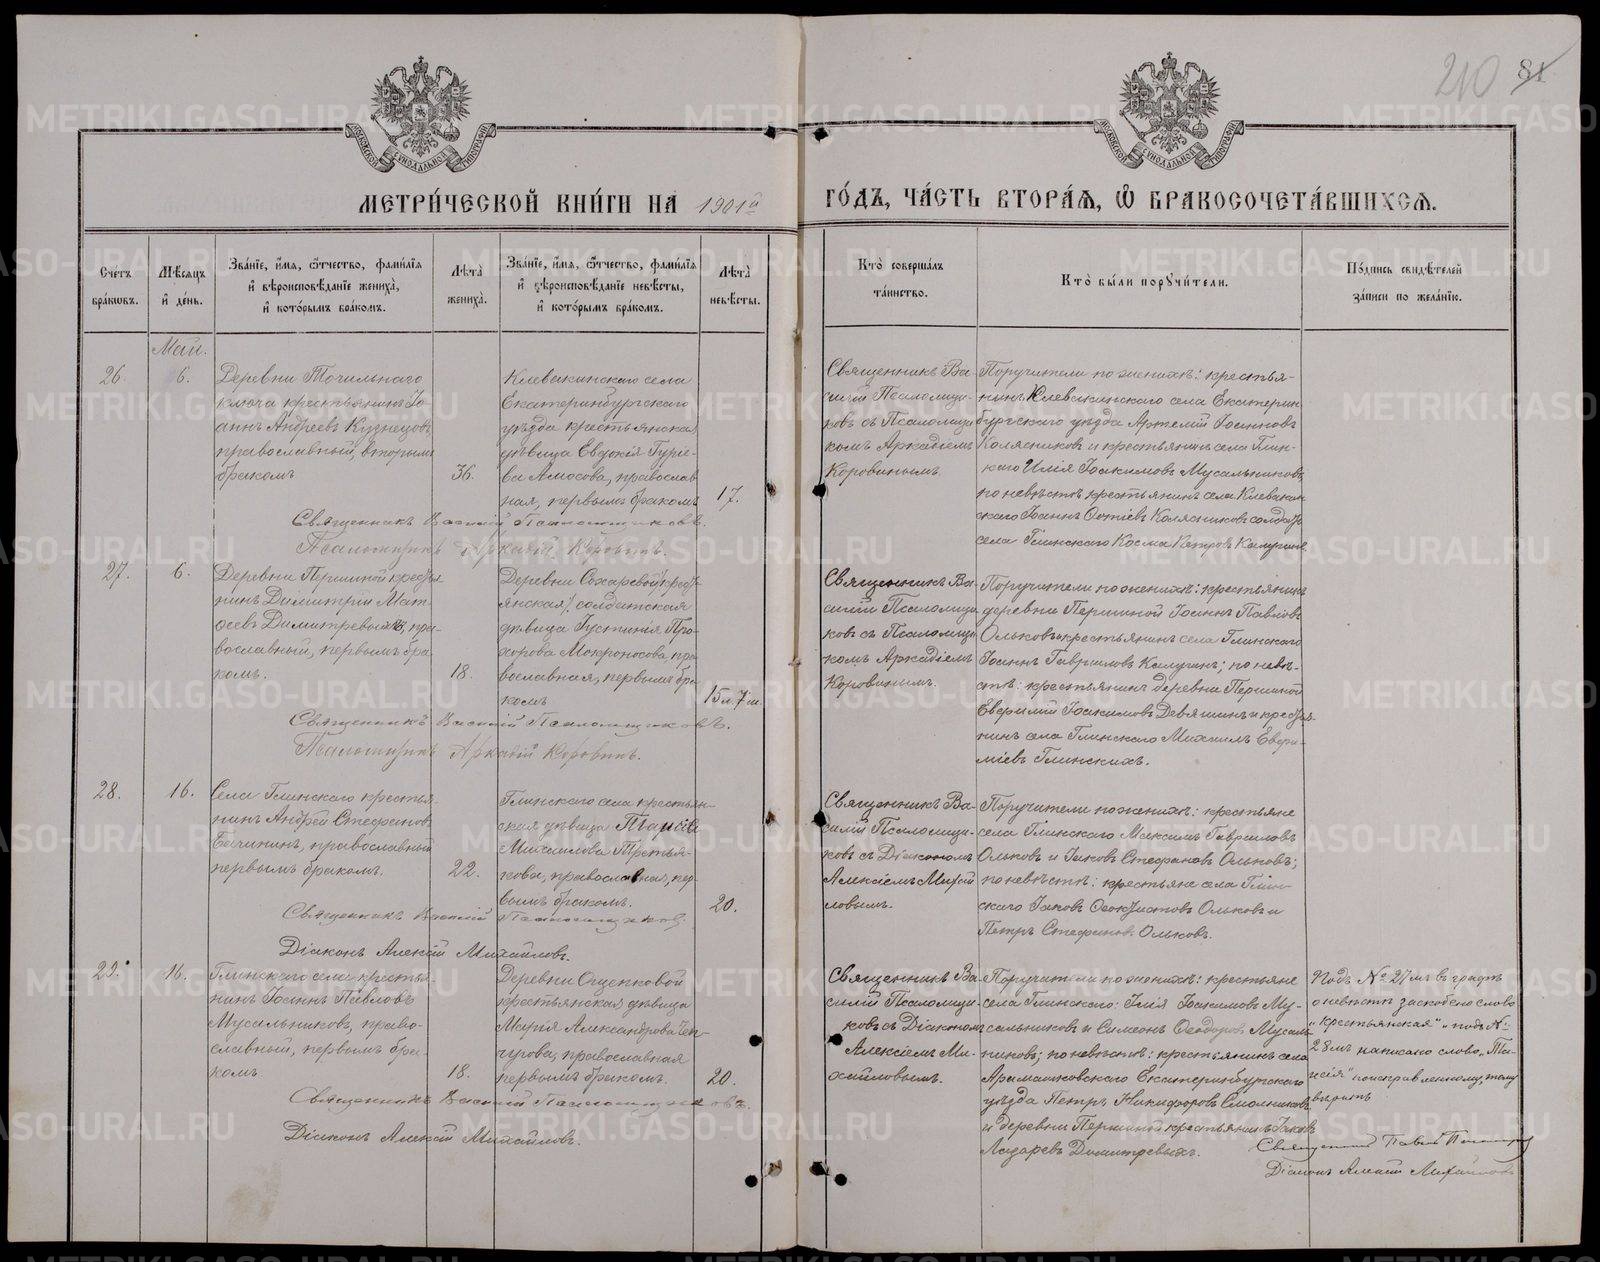 210 81
МЕТРИ́ЧЕСКОЙ КНИ́ГИ НА 1901й ГО́ДЪ, ЧА́СТЬ ВТОРА́Я, Ѡ҆ БРАКОСОЧЕТА́ВШИХСЯ.
Сче́тъ бра́ковъ.
Мѣ́сяцъ и҆ де́нь.
Зва́нїе, и҆́мя, ѻ҆́тчество, фами́лїя
и҆ вѣроисповѣ́данїе жениха̀,
и҆ кото́рымъ бра́комъ.
Лѣ́та жениха̀.
Зва́нїе, и҆́мя, ѻ҆́тчество, фами́лїя
и҆ вѣроисповѣ́данїе невѣ́сты,
и҆ кото́рымъ бра́комъ.
Лѣ́та невѣ́сты.
Кто̀ соверша́лъ
та́инство.
Кто̀ бы́ли порꙋчи́тели.
По́дпись свидѣ́телей
за́писи по жела́нїю.
Май.
26. 6.
Деревни Точильнаго
ключа крестьянинъ Іо-
аннъ Андреевъ Кузнецовъ
православный, вторымъ
бракомъ
36.
Клевакинскаго села
Екатеринбургскаго
уѣзда крестьянская
дѣвица Евдокія Гурie-
ва Амосова, православ-
ная, первымъ бракомъ
17.
Священникъ Ва-
силій Псаломщи-
ковъ съ Псаломщи-
комъ Аркадіемъ
Коровинымъ.
Поручители по женихѣ: крестья-
нинъ Клевакинскаго села Екатерин
бургскаго уѣзда Артемій Іоанновъ
Колясниковъ и крестьянинъ села Глин-
скаго Илія Іоакимовъ Мусальниковъ,
по невѣстѣ крестьянинъ села Клевакин
скаго Іоаннъ Колясниковъ солдатъ
села Глинскаго Косма Петровъ Калугинъ.
Священникъ Василій Псаломщиковъ.
Псаломщикъ Аркадій Коровинъ.
27. 6.
Деревни Першиной кресть
нинъ Димитрій Мат-
ѳеевъ Димитревыхъ, пра-
вославный, первымъ бра-
комъ.
18.
Деревни Сохаревой кресть-
янская, солдатская
дѣвица Іустинія Про-
хорова Мокроносова, пра
вославная, первымъ бра
комъ
15 л. 7 м.
Священникъ Ва-
силій Псаломщи-
ковъ съ Псаломщи-
комъ Аркадіемъ
Коровинымъ.
Поручители по женихѣ: крестьянинъ
деревни Першиной Іоаннъ Павловъ
Ольковъ и крестьянинъ села Глинскаго
Іоаннъ Гавриловъ Калугинъ; по невѣ-
стѣ: крестьянинъ деревни Першиной
Евѳимій Іоакимовъ Девяшинъ и крестья
нинъ села Глинскаго Михаилъ Евѳи-
міевъ Глинскихъ.
Священникъ Василій Псаломщиковъ.
Псаломщикъ Аркадій Коровинъ.
28. 16.
Села Глинскаго крестья-
нинъ Андрей Стефановъ
Бачининъ, православный
первымъ бракомъ.
22.
Глинскаго села крестьян-
ская дѣвица Таисія
Михаилова Третья-
кова, православная, пер-
вымъ бракомъ.
20.
Священникъ Ва-
силій Псаломщи-
ковъ съ Діакономъ
Алексіемъ Михай
ловымъ.
Поручители по женихѣ: крестьяне
села Глинскаго Максимъ Гавриловъ
Ольковъ и Іаковъ Стефановъ Ольковъ;
по невѣстѣ: крестьяне села Глин-
скаго Іаковъ Ѳеоктистовъ Ольковъ и
Петръ Стефановъ Ольковъ.
Священникъ Василій Псаломщиковъ.
Діаконъ Алексій Михайловъ.
29. 16.
Глинскаго села крестья-
нинъ Іоаннъ Павловъ
Мусальниковъ, право-
славный, первымъ бра-
комъ
18.
Деревни Ощепковой
крестьянская дѣвица
Марія Александрова Чеп-
чугова, православная
первымъ бракомъ.
20.
Священникъ Ва-
силій Псаломщи-
ковъ съ Діакономъ
Алексіемъ Ми-
хайловымъ.
Поручители по женихѣ: крестьяне
села Глинскаго: Илія Іоакимовъ Му-
сальниковъ и Симеонъ Ѳеодоровъ Мусаль
никовъ; по невѣстѣ: крестьянинъ села
Арамашковскаго Екатеринбургскаго
уѣзда Петръ Никифоровъ Смолниковъ
и деревни Першиной крестьянинъ Іаковъ
Лазаревъ Димитревыхъ.
Подъ № 27мъ въ графѣ
о невѣстѣ заскоблено слово
„крестьянская“ и подъ №
28мъ написано слово „Та-
исія“ поисправленному, тому
вѣрить
Священникъ Василій Псаломщиковъ.
Діаконъ Алексій Михайловъ.
Священникъ Павелъ
Діаконъ Алексій Михайловъ
METRIKI.GASO-URAL.RU